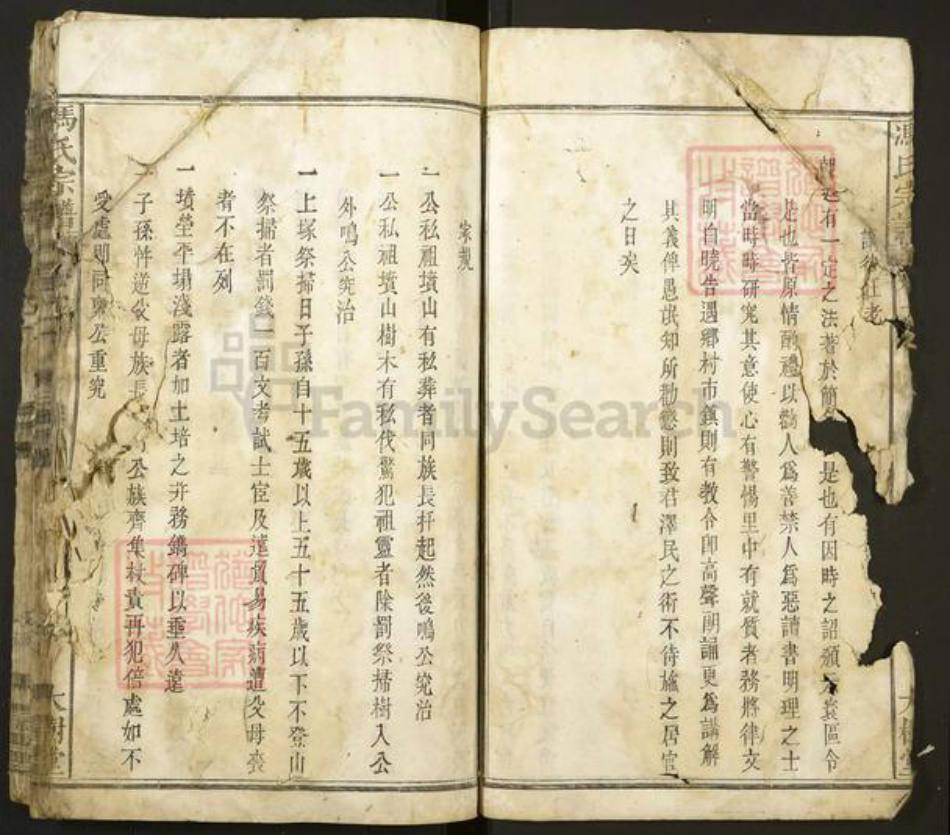 朝廷有一定之法著於簡 是也有因時之詔頒 寰區令
是也皆原情酌禮以勸人為善禁人為惡讀書明理之士
當時時研究其意使心有警惕里中有就質者務將律文
明白曉告遇鄉村市鎮則有教令即高聲朗誦更為講解
其義俾愚氓知所勸懲則致君澤民之術不待旅之居官
之日矣
馮氏宗譜
大樹堂
宗規
一公私祖墳山有私葬者同族長扦起然後鳴公究治
一公私祖墳山樹木有私伐驚犯祖靈者除罰祭掃樹入公
外鳴公究治
一上塚祭掃日子孫自十五歲以上五十五歲以下不登山
祭掃者罰錢一百文考試士宦及遠貿易疾病遭父母喪
者不在列
一墳塋平塌淺露者加土培之并務鐫碑以垂久遠
一子孫忤逆父母族長 公族齊集杖責再犯倍處如不
受處即同稟公重究
馮氏宗譜
大樹堂
FamilySearch